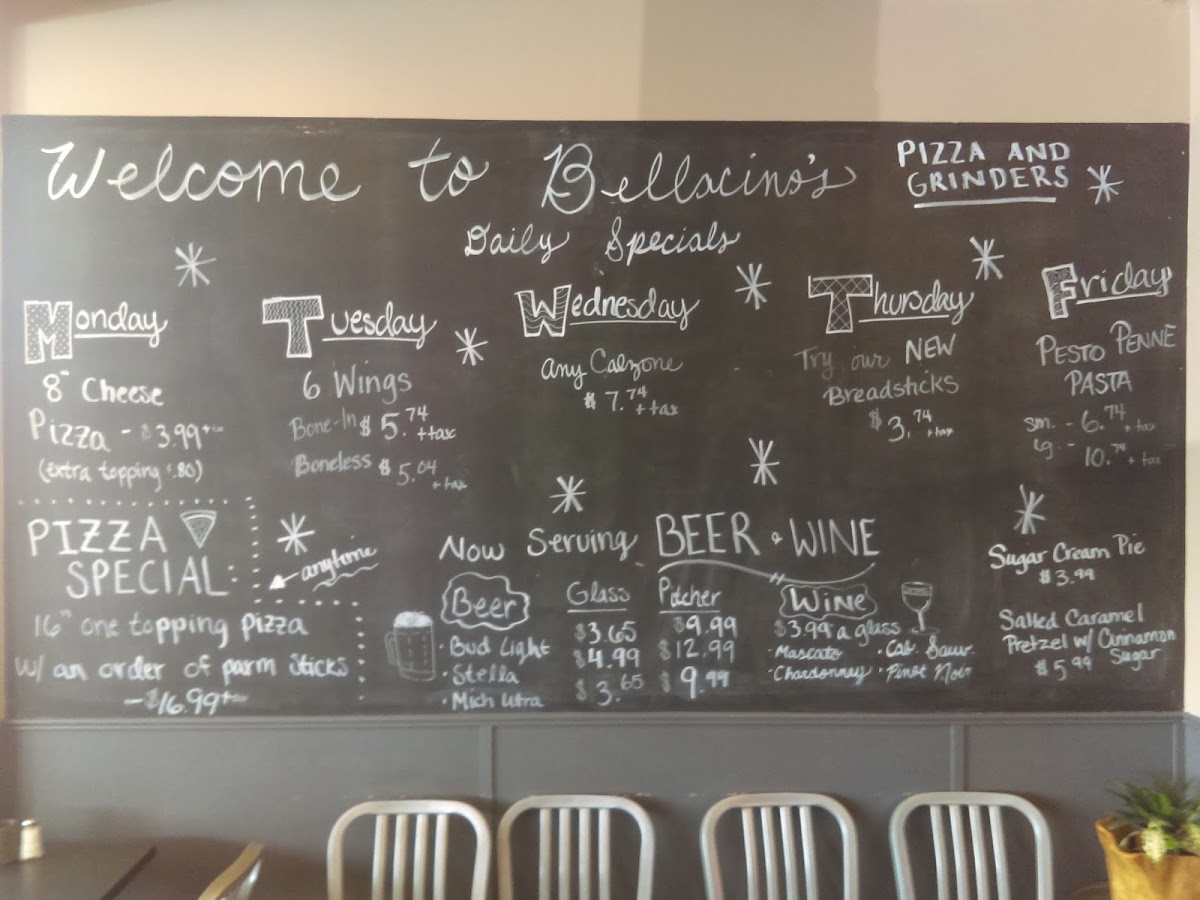 Welcome to Bellacino's
PIZZA AND
GRINDERS
Daily Specials
Monday
8" Cheese
Pizza - $3.99 + tax
(extra topping $.80)
Tuesday
6 Wings
Bone-In $5.74 + tax
Boneless $5.04 + tax
Wednesday
any Calzone
$7.74 + tax
Thursday
Try our NEW
Breadsticks
$3.74 + tax
Friday
PESTO PENNE
PASTA
sm. - 6.74 + tax
lg - 10.74 + tax
PIZZA
SPECIAL
anytime
16" one topping pizza
w/ an order of parm sticks
- $16.99 + tax
Now Serving BEER & WINE
Beer Glass Pitcher
• Bud Light $3.65 $9.99
• Stella $4.99 $12.99
• Mich Ultra $3.65 $9.99
Wine
$3.99 a glass
• Moscato • Cab. Sauv.
• Chardonnay • Pinot Noir
Sugar Cream Pie
$3.99
Salted Caramel
Pretzel w/ Cinnamon
Sugar
$5.99